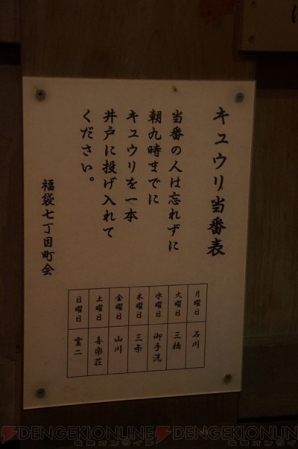 キュウリ当番表
当番の人は忘れずに
朝九時までに
キュウリを一本
井戸に投げ入れて
ください。
福袋七丁目町会
月曜日 石川
火曜日 三橋
水曜日 御手洗
木曜日 三条
金曜日 山川
土曜日 喜楽荘
日曜日
DENGEKIONLINE
DENGEKIONLINE